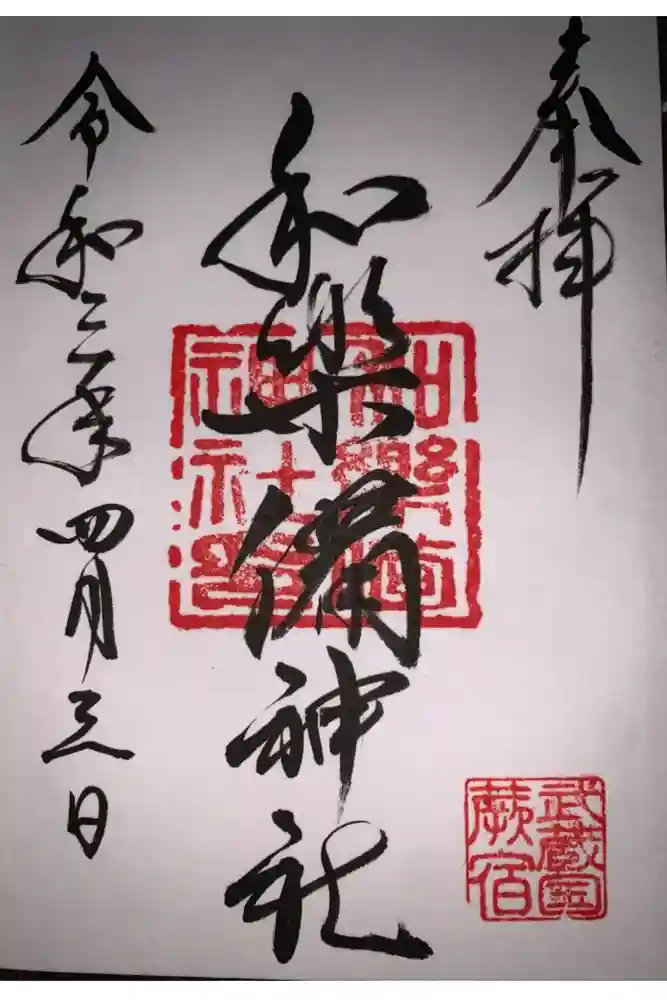 奉拝
武蔵国
蕨宿
和樂備神社
令和三年四月三日